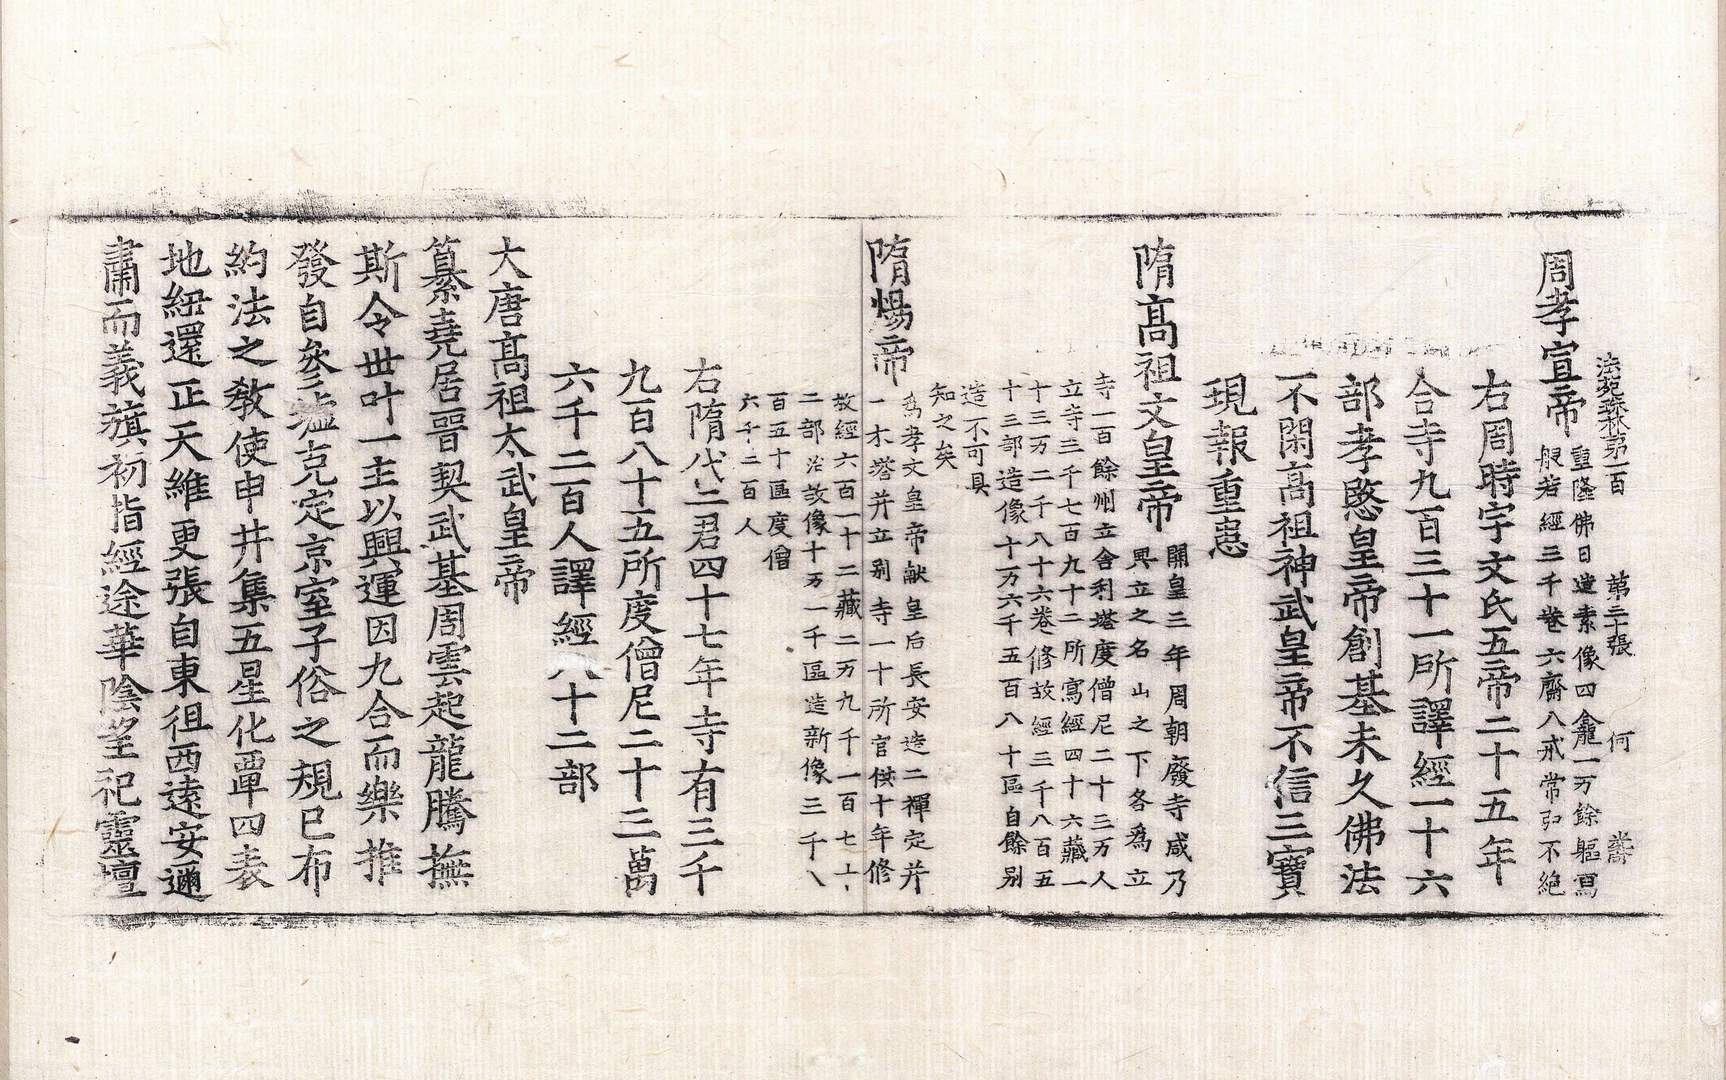 法苑珠林第一百 第三十張 何
周孝宣帝 重隆佛日造素像四龕一万餘軀寫
般若經三千卷六齋八戒常弘不絶
右周時宇文氏五帝二十五年
合寺九百三十一所譯經一十六
部孝愍皇帝創基未久佛法
不閑高祖神武皇帝不信三寶
現報重患
隋高祖文皇帝 開皇三年周朝廢寺咸乃
興立之名山之下各爲立
寺一百餘州立舍利塔度僧尼二十三万人
立寺三千七百九十二所寫經四十六藏一
十三万二千八十六卷修故經三千八百五
十三部造像十万六千五百八十區自餘别
造不可具
知之矣
隋煬帝 爲孝文皇帝献皇后長安造二禪定并
一木塔并立别寺一十所官供十年修
故經六百一十二藏二万九千一百七十
二部治故像十万一千區造新像三千八
百五十區度僧
六千二百人
右隋代二君四十七年寺有三千
九百八十五所度僧尼二十三萬
六千二百人譯經八十二部
大唐高祖太武皇帝
纂堯居晋契武基周雲起龍騰撫
斯令丗叶一主以興運因九合而樂推
發自參墟克定京室子俗之規已布
約法之教使申井集五星化覃四表
地紐還正天維更張自東徂西遠安邇
肅而義旗初指經途華陰望祀靈壇